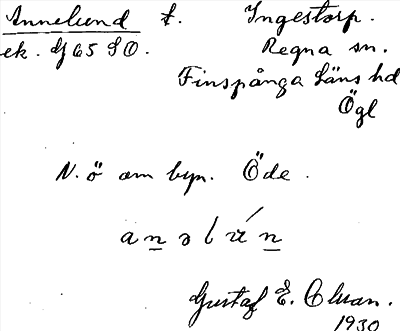 Annelund t. Ingestorp.
ek. Gj 65 SO. Regna sn.
Finspånga läns hd
Ögl
N. ö om byn. Öde.
Gustaf E.
1930